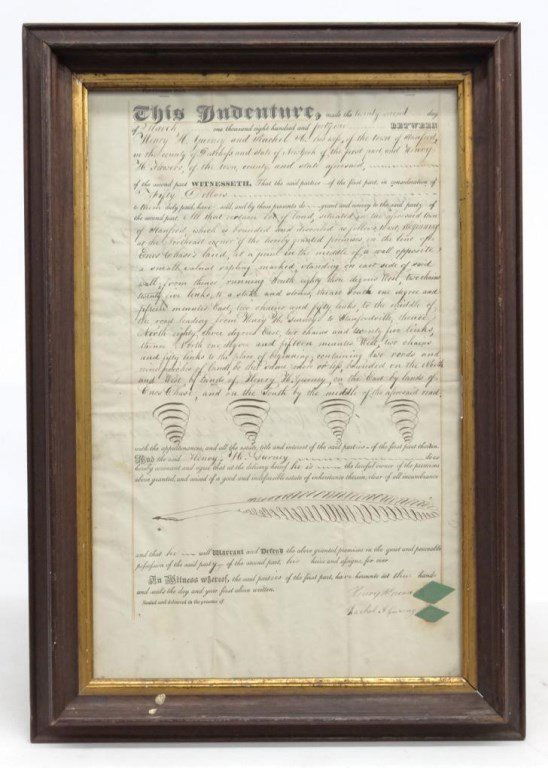 This Indenture, made the twenty second day
of March one thousand eight hundred and forty BETWEEN
Henry H. Gurney and Rachel his wife, of the town of Stanford,
in the county of Dutchess and state of New York of the first part and Henry
of the town county and state aforesaid,
of the second part WITNESSETH, That the said parties of the first part, in consideration of
Fifty Dollars
to them duly paid, have and by these presents do grant and convey to the said party of
the second part All that certain lot of land, situated in the aforesaid town
of Stanford, which is bounded and described as follows Beginning
at the Northeast corner of the hereby granted premises in the line of
Enos Chase's land, at a point in the middle of a wall opposite
a small walnut sapling marked, standing on east side of said
wall from thence running South eighty three degrees West, two chains
twenty five links, to a stake and stones, thence South one degree and
fifteen minutes East, two chains and fifty links, to the middle of
the road leading from Henry H. Gurney's to thence
North eighty three degrees East, two chains and twenty five links,
thence North one degree and fifteen minutes West, two chains
and fifty links to the place of beginning, containing two roods and
perches of land be the same more or less, bounded on the North
and West by lands of Henry H. Gurney, on the East by lands of
Enos Chase, and on the South by the middle of the aforesaid road,
with the appurtenances, and all the estate, title and interest of the said parties of the first part therein.
And the said Henry H. Gurney does
hereby covenant and agree that at the delivery hereof he is the lawful owner of the premises
above granted, and seized of a good and indefeasible estate of inheritance therein, clear of all incumbrance
and that he will Warrant and Defend the above granted premises in the quiet and peaceable
possession of the said party of the second part, his heirs and assigns, for ever
In Witness whereof, the said parties of the first part, have hereunto set their hands
and seals the day and year first above written.
Sealed and delivered in the presence of
Henry H
Rachel Gurney